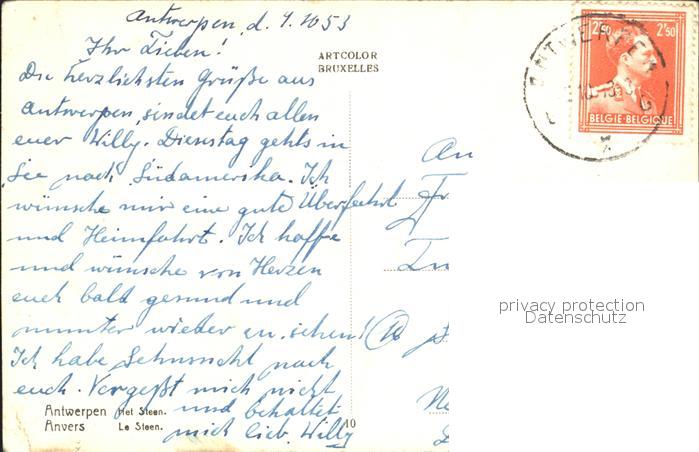 Antwerpen, d. 4.10 53
Ihr Lieben!
Die herzlichsten Grüße aus
Antwerpen, sendet euch allen
euer Willy. Dienstag gehts in
See nach Südamerika. Ich
wünsche mir eine gute Überfahrt
und Heimfahrt. Ich hoffe
und wünsche von Herzen
euch bald gesund und
munter wieder zu sehen!
Ich habe Sehnsucht nach
euch. Vergeßt mich nicht
und behaltet
mich lieb. Willy
Antwerpen Het Steen.
Anvers Le Steen.
10
ARTCOLOR
BRUXELLES
An
2'50 2'50
BELGIE-BELGIQUE
ANTWERPEN
privacy protection
Datenschutz